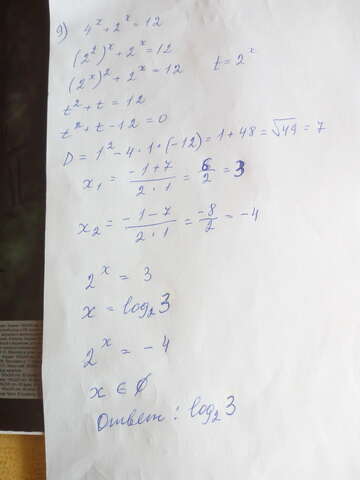 9) 4^x + 2^x = 12
(2^2)^x + 2^x = 12
(2^x)^2 + 2^x = 12 t = 2^x
t^2 + t = 12
t^2 + t - 12 = 0
D = 1^2 - 4 · 1 · (-12) = 1 + 48 = √49 = 7
x₁ = (-1 + 7)/(2 · 1) = 6/2 = 3
x₂ = (-1 - 7)/(2 · 1) = -8/2 = -4
2^x = 3
x = log₂3
2^x = -4
x ∈ ∅
Ответ: log₂3